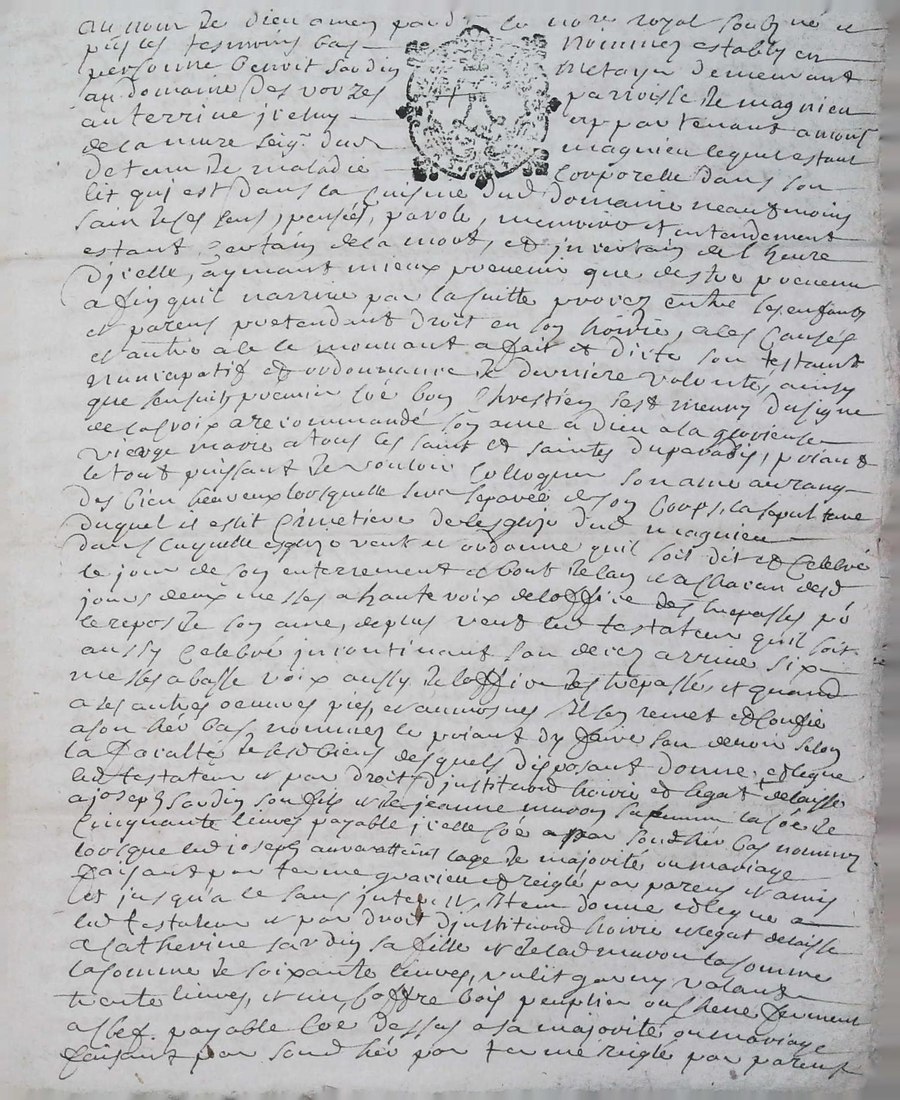 au nom de dieu amen par d le no.re royal soubz.né et
p.nts les tesmoins bas nommez establÿ en
personne Benoit sardin metayer demeurant
au domaine des vorzes parroisse de magnieu
au terrine jceluy appartenant a mons.r
de la mure seig.r dud magnieu lequel estant
detenu de maladie corporelle dans son
lit qui est dans la cuisine dud domaine neautmoins
sain de ses sens, pensées, parole, memoire et entendement
estant certain de la mort, et jncertain de l heure
djcelle, aÿmant mieux prevenir que destre prevenu
afin quil narrive par la suitte procez entre ses enfants
et parens pretendant droit en son hoirie, a ses causes
et autre a ce le mouvant a fait et dicté son testam.t
nuncupatif et ordonnance de derniere volonté, ainsy
que sensuit premier coe bon chrestien sest meuny du signe
de la croix a recommandé son ame a dieu a la glorieuse
vierge marie a tous les saint et saintes du paradis, priant
le tout puissant de vouloir colloquer son ame au rang
des bien heureux lorsquelle sera separée de son corps, la sepulture
duquel il eslit cimetiere de lesglize dud magnieu
dans laquelle esglize veut et ordonne quil soit dit et celebré
le jour de son enterrement et bout de lan et a chacun desd
jours deux messes a haute voix de loffice des trepassés po
le repos de son ame, de plus veut led testateur quil soit
aussy celebré jncontinant son decez arrivé six
messes a basse voix aussy de loffice des trepassés, et quand
a ses autres oeuvres pies, et aumosnes Il sen remet et confie
a son her bas nommez le priant dy faire son devoir selon
la faculté de sesd biens desquels disposant donne et legue
led testateur et par droit djnstitu.on hoirie et legat delaisse
a joseph sardin son fils et de jeanne maron sa femme la soe de
cinquante livres payable jcelle soe par sond her bas nommez
lorsque led joseph aura atteins lage de majorité ou mariage
faisant par terme gracieu et reiglé par parens et amis
et jusqu'a ce sans interets, Item donne et legue
led testateur et par droit djnstitu.on hoirie et legat delaisse
a catherine sardin sa fille et de lad maron la somme
la somme de soixante livres, un lit garny valant
trente livres, et un coffre bois peuplier ou chene fermant
a clef payable coe dessus a sa majorité ou mariage
faisant par sond her par terme reiglé par parens